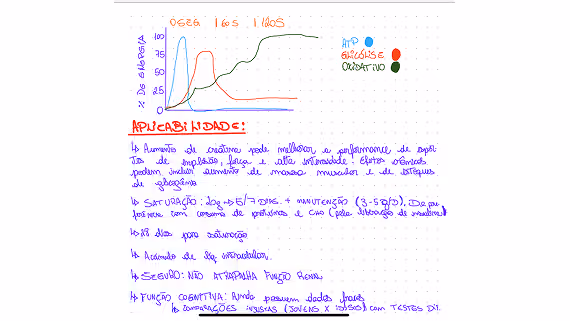 0SEG 60S 120S
% DE ENERGIA
100
75
50
25
0
ATP
GLICÓLISE
OXIDATIVO
APLICABILIDADE:
↳ Aumento de creatina pode melhorar a performance de espor-
tes de explosão, força e alta intensidade! Efeitos crônicos
podem incluir aumento de massa muscular e de estoques
de glicogênio
↳ SATURAÇÃO: 20g → 5/7 DIAS. + MANUTENÇÃO (3-5g/D). De pre
ferência com consumo de proteínas e CHO (pela liberação de insulina)
↳ 28 dias para saturação
↳ Acúmulo de líq intracelular.
↳ SEGURO: NÃO ATRAPALHA FUNÇÃO RENAL
↳ FUNÇÃO COGNITIVA: Ainda possuem dados fracos
↳ COMPARAÇÕES (JOVENS X IDOSOS) COM TESTES